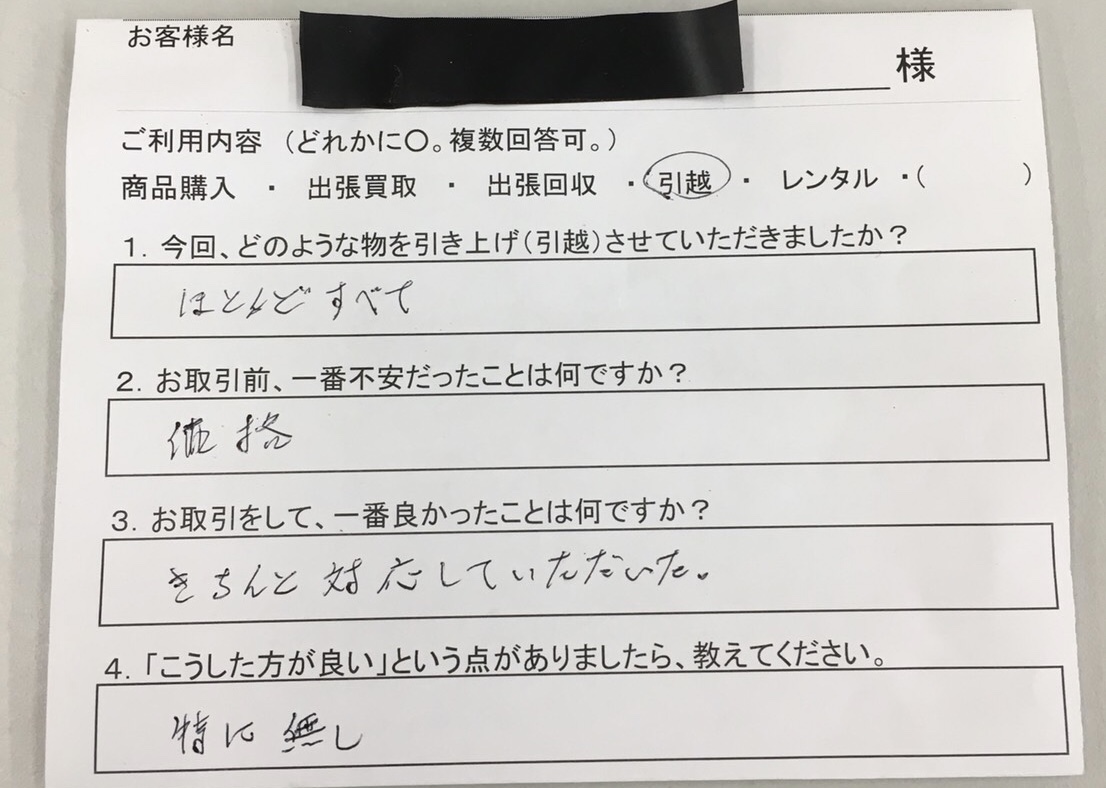 お客様名
様
ご利用内容 (どれかに〇。複数回答可。)
商品購入 ・ 出張買取 ・ 出張回収 ・ 引越 ・ レンタル ・( )
1. 今回、どのような物を引き上げ(引越)させていただきましたか?
ほとんどすべて
2. お取引前、一番不安だったことは何ですか?
価格
3. お取引をして、一番良かったことは何ですか?
きちんと対応していただいた。
4.「こうした方が良い」という点がありましたら、教えてください。
特に無し